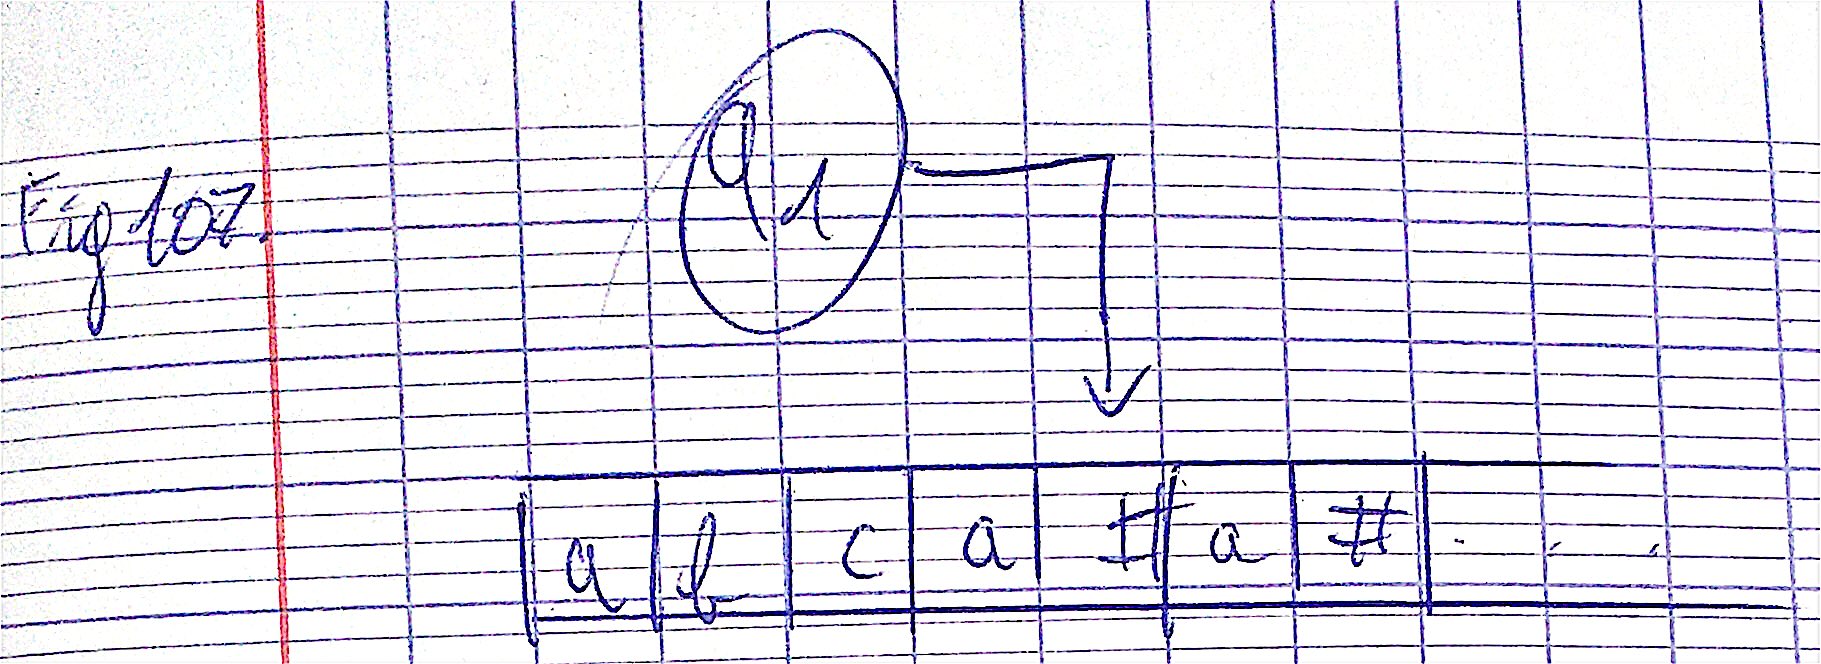 Fig 107.
q1
a b c a # a # . . .